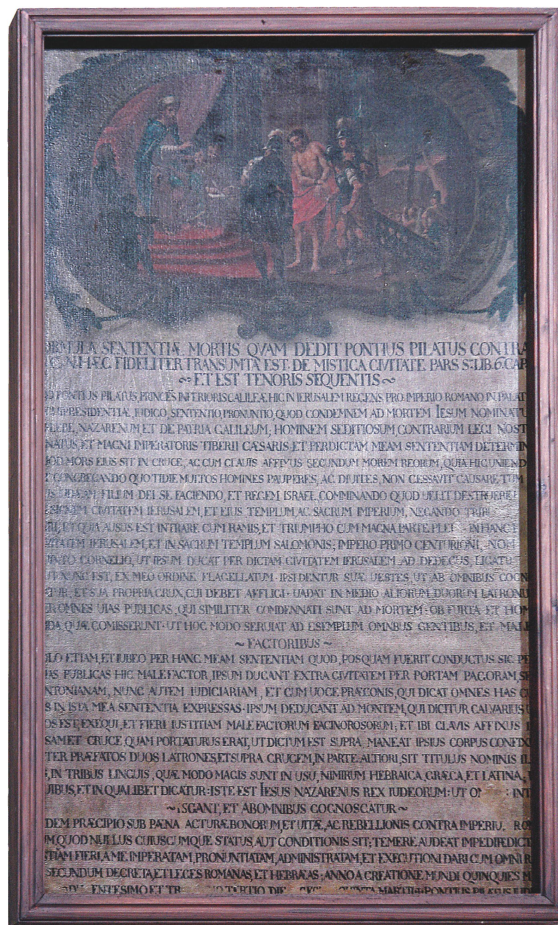 SENTENTIÆ MORTIS QVAM DEDIT PONTIUS PILATUS CONTRA
HÆC FIDELITER TRANSUMTA EST DE MISTICA CIVITATE PARS LIB 6 CAP
~ET EST TENORIS SEQUENTIS~
PONTIUS PILATUS PRINCEPS INFERIORIS GALILEÆ HIC IN IERUSALEM REGENS PRO IMPERIO ROMANO IN PALAT
PRESIDENTIÆ, IUDICO, SENTENTIO, PRONUNTIO QUOD CONDEMNEM AD MORTEM IESUM NOMINATU
PLEBE, NAZARENUM ET DE PATRIA GALILEUM, HOMINEM SEDITIOSUM CONTRARIUM LEGI NOST
ET MAGNI IMPERATORIS TIBERII CÆSARIS ET PER DICTAM MEAM SENTENTIAM DETERMIN
MORS EIUS SIT IN CRUCE, AC CUM CLAUIS AFFIXUS SECUNDUM MOREM REORUM, QUIA HIC
CONGREGANDO QUOTIDIE MULTOS HOMINES PAUPERES, AC DIUITES, NON CESSAVIT CAUSARE TUM
FILIUM DEI SE FACIENDO, ET REGEM ISRAEL, COMMINANDO QUOD UELIT DESTRUERE
CIVITATEM IERUSALEM, ET EIUS TEMPLUM, AC SACRUM IMPERIUM, NEGANDO
ET QUIA AUSUS EST INTRARE CUM RAMIS, ET TRIUMPHO CUM MAGNA PARTE PLEB IN HANC
IERUSALEM, ET IN SACRUM TEMPLUM SALOMONIS; IMPERO PRIMO CENTURIONI, NOM
CORNELIO, UT IPSUM DUCAT PER DICTAM CIVITATEM IERUSALEM AD DEDECUS, LIGATU
EST, EX MEO ORDINE FLAGELLATUM IPSI DENTUR SUÆ UESTES, UT AB OMNIBUS COGN
ET SUA PROPRIA CRUX, CUI DEBET AFFLIGI UADAT IN MEDIO ALIORUM DUORUM LATRONU
OMNES UIAS PUBLICAS, QUI SIMILITER CONDENNATI SUNT AD MORTEM OB FURTA ET HOM
QUÆ COMISSERUNT UT HOC MODO SERUIAT AD ESEMPLUM OMNIBUS GENTIBUS, ET MALE
~FACTORIBUS~
ETIAM, ET IUBEO PER HANC MEAM SENTENTIAM QUOD, POSQUAM FUERIT CONDUCTUS SIC PE
PUBLICAS HIC MALEFACTOR, IPSUM DUCANT EXTRA CIVITATEM PER PORTAM PAGORAM, S
NUNC AUTEM IUDICIARIAM, ET CUM UOCE PRÆCONIS, QUI DICAT OMNES HAS C
IN ISTA MEA SENTENTIA EXPRESSAS IPSUM DEDUCANT AD MONTEM, QUI DICITUR CALVARIUS U
EST EXEQUI, ET FIERI IUSTITIAM MALEFACTORUM FACINOROSORUM; ET IBI CLAVIS AFFIXUS
CRUCE, QUAM PORTATURUS ERAT, UT DICTUM EST SUPRA, MANEAT IPSIUS CORPUS CONFIXU
PRÆFATOS DUOS LATRONES, ET SUPRA CRUCEM, IN PARTE ALTIORI, SIT TITULUS NOMINIS
IN TRIBUS LINGUIS, QUÆ MODO MAGIS SUNT IN USU, NIMIRUM HEBRAICA, GRÆCA, ET LATINA,
ET IN QUALIBET DICATUR: ISTE EST IESUS NAZARENUS REX IUDEORUM: UT
ET ABOMNIBUS COGNOSCATUR~
PRÆCIPIO SUB PÆNA ACTURÆ BONORUM, ET UITÆ, AC REBELLIONIS CONTRA IMPERIU,
QUOD NULLUS CUIUSCUMQUE STATUS, AUT CONDITIONIS SIT; TEMERE AUDEAT IMPEDIRE DICT
FIERI, A ME IMPERATAM, PRONUNTIATAM, ADMINISTRATAM, ET EXECUTIONI DARI CUM OMNI
SECUNDUM DECRETA, ET LEGES ROMANAS, ET HEBRÆAS; ANNO A CREATIONE MUNDI QUINQUIES
ET TERTIO DIE QUINTA MARTII PONTIUS PILATUS